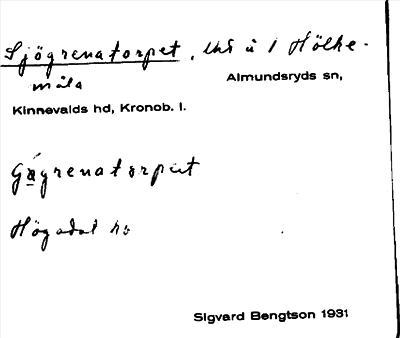 Sjögrenatorpet, lht u 1 Hölke-
måla Almundsryds sn,
Kinnevalds hd, Kronob. l.
Gögrenatorpet
Högadal hs
Sigvard Bengtson 1931